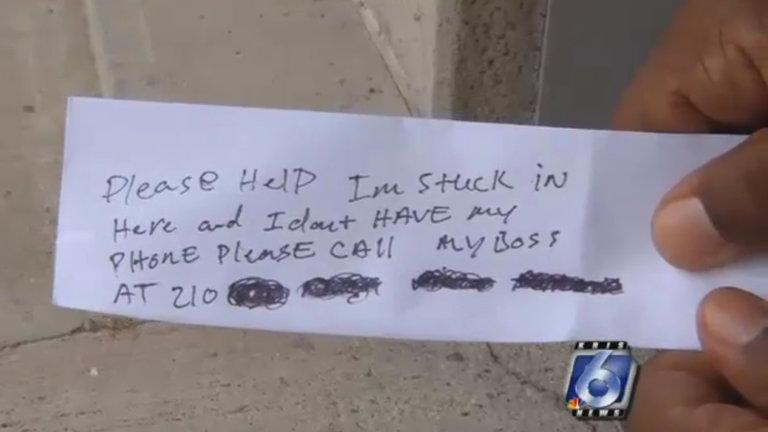 Please Help Im stuck in
Here and I dont HAVE my
PHONE PleASE CAll MY BOSS
AT 210
KRIS
6
NEWS